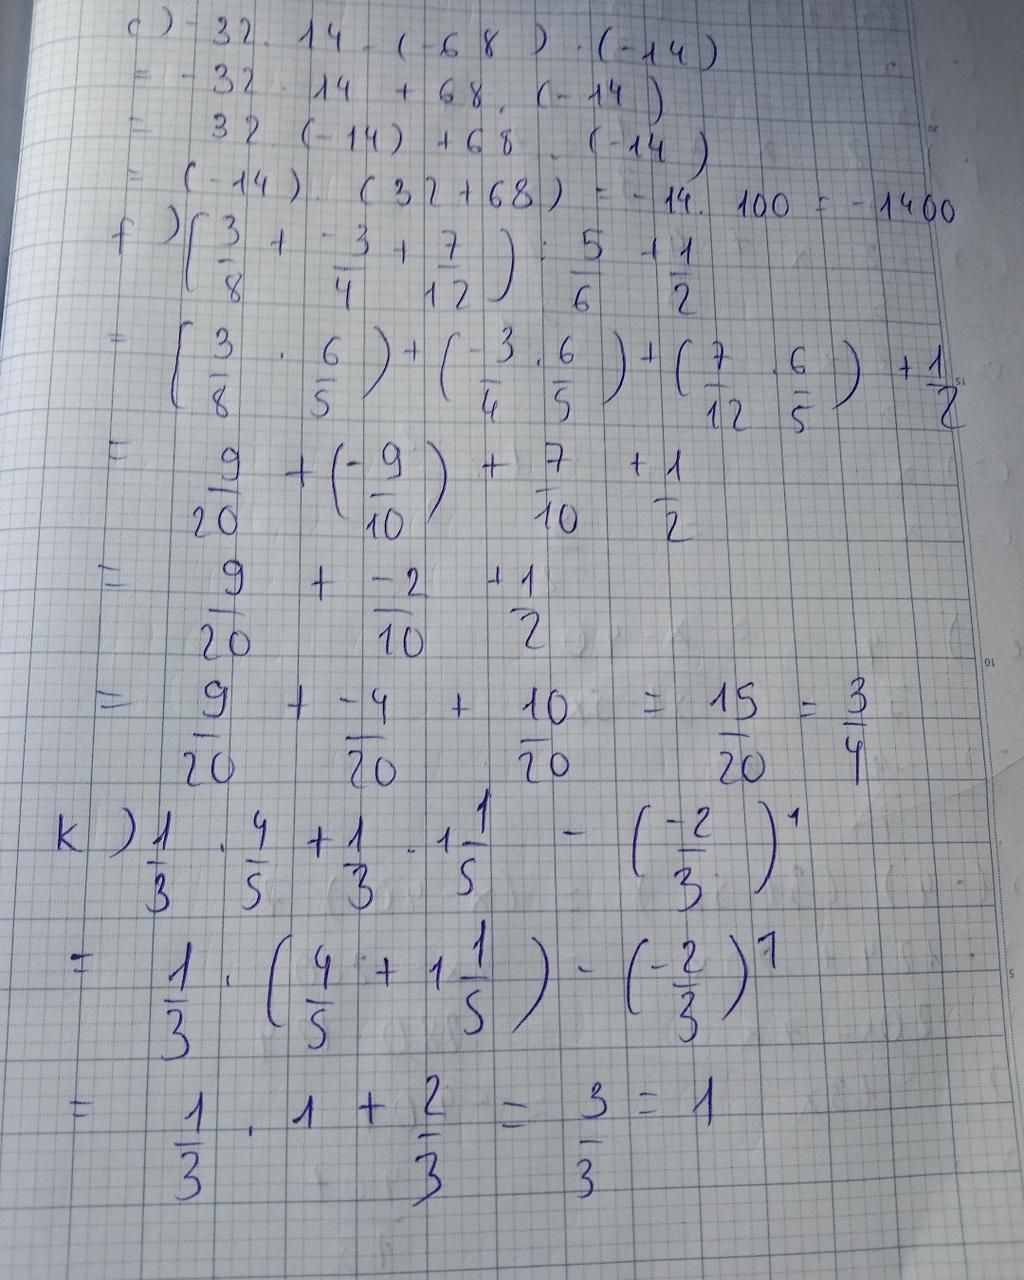 c) -32 . 14 - (-68) . (-14)
= -32 . 14 + 68 . (-14)
= 32 . (-14) + 68 . (-14)
= (-14) . (32+68) = -14 . 100 = -1400
f) (3/8 + -3/4 + 7/12) : 5/6 + 1/2
= (3/8 . 6/5) + (-3/4 . 6/5) + (7/12 . 6/5) + 1/2
= 9/20 + (-9/10) + 7/10 + 1/2
= 9/20 + -2/10 + 1/2
= 9/20 + -4/20 + 10/20 = 15/20 = 3/4
k) 1/3 . 4/5 + 1/3 . 1 1/5 - (-2/3)^1
= 1/3 . (4/5 + 1 1/5) - (-2/3)^1
= 1/3 . 1 + 2/3 = 3/3 = 1